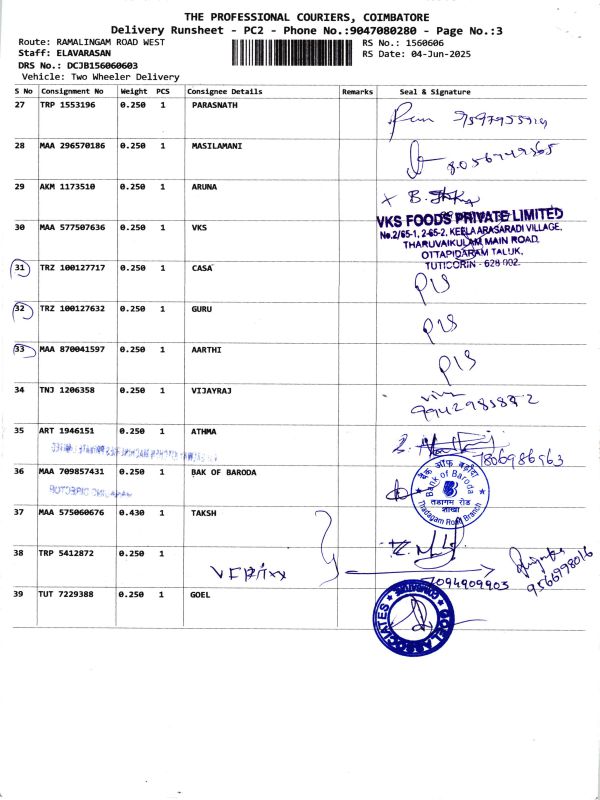 THE PROFESSIONAL COURIERS, COIMBATORE
Delivery Runsheet - PC2 - Phone No.:9047080280 - Page No.:3
Route: RAMALINGAM ROAD WEST RS No.: 1560606
Staff: ELAVARASAN RS Date: 04-Jun-2025
DRS No.: DCJB156060603
Vehicle: Two Wheeler Delivery
S No Consignment No Weight PCS Consignee Details Remarks Seal & Signature
27 TRP 1553196 0.250 1 PARASNATH
28 MAA 296570186 0.250 1 MASILAMANI
29 AKM 1173510 0.250 1 ARUNA
30 MAA 577507636 0.250 1 VKS
VKS FOODS PRIVATE LIMITED
No.2/65-1, 2-65-2, KEELA ARASARADI VILLAGE,
THARUVAIKULAM MAIN ROAD,
OTTAPIDARAM TALUK,
TUTICORIN - 628 002.
31 TRZ 100127717 0.250 1 CASA
32 TRZ 100127632 0.250 1 GURU
33 MAA 870041597 0.250 1 AARTHI
34 TNJ 1206358 0.250 1 VIJAYRAJ
35 ART 1946151 0.250 1 ATHMA
7806986963
36 MAA 709857431 0.250 1 BAK OF BARODA
बैंक ऑफ़ बड़ौदा
Bank of Baroda
तडागम रोड
शाखा
Thadagam Road Branch
37 MAA 575060676 0.430 1 TAKSH
38 TRP 5412872 0.250 1
7094909903
9566998016
39 TUT 7229388 0.250 1 GOEL
GOEL ASSOCIATES
COIMBATORE